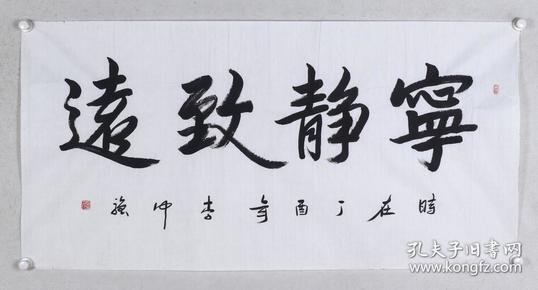 寧靜致遠
時在丁酉年李仲強
孔夫子旧书网
www.kongfz.com